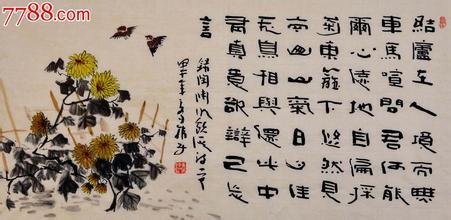 7788.com
結廬在人境而無
車馬喧問君何能
爾心遠地自偏採
菊東籬下悠然見
南山山氣日夕佳
飛鳥相與還此中
有真意欲辯已忘
言
錄陶淵明飲酒詩
甲午年